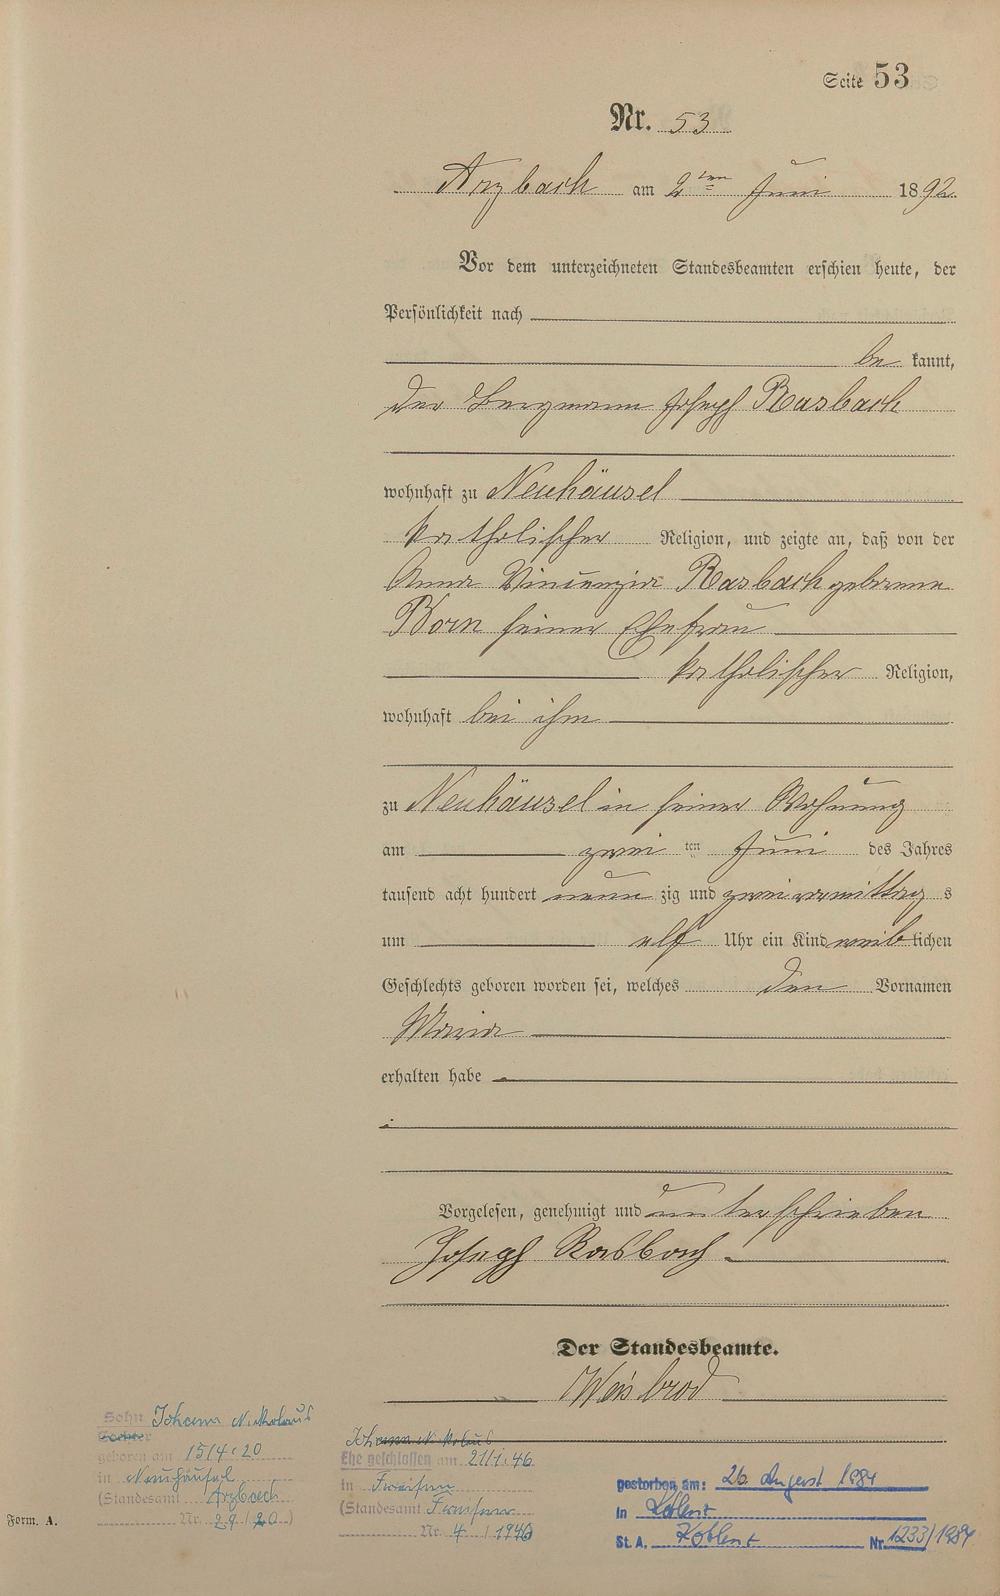 Seite 53
Nr. 53
Arzbach am 2ten Juni 1892
Vor dem unterzeichneten Standesbeamten erschien heute, der
Persönlichkeit nach
be kannt,
der Bergmann Joseph Rasbach
wohnhaft zu Neuhäusel
katholischer Religion, und zeigte an, daß von der
Anna Vincenzia Rasbach geborene
Born seiner Ehefrau
katholischer Religion,
wohnhaft bei ihm
zu Neuhäusel in seiner Wohnung
am zwei ten Juni des Jahres
tausend acht hundert neun zig und zwei vormittag s
um elf Uhr ein Kind weib lichen
Geschlechts geboren worden sei, welches den Vornamen
Maria
erhalten habe
Vorgelesen, genehmigt und unterschrieben
Joseph Rasbach
Der Standesbeamte.
Weisbrod
Sohn Johann Nikolaus
Tochter
geboren am 15/4.20
in Neuhäusel
(Standesamt Arzbach
Nr. 29 / 20)
Johann Nikolaus
Ehe geschlossen am 21/1.46
in
(Standesamt
Nr. 4 / 1946
gestorben am: 26. August 1984
in Koblenz
St. A. Koblenz Nr. 1233/1984
Form. A.